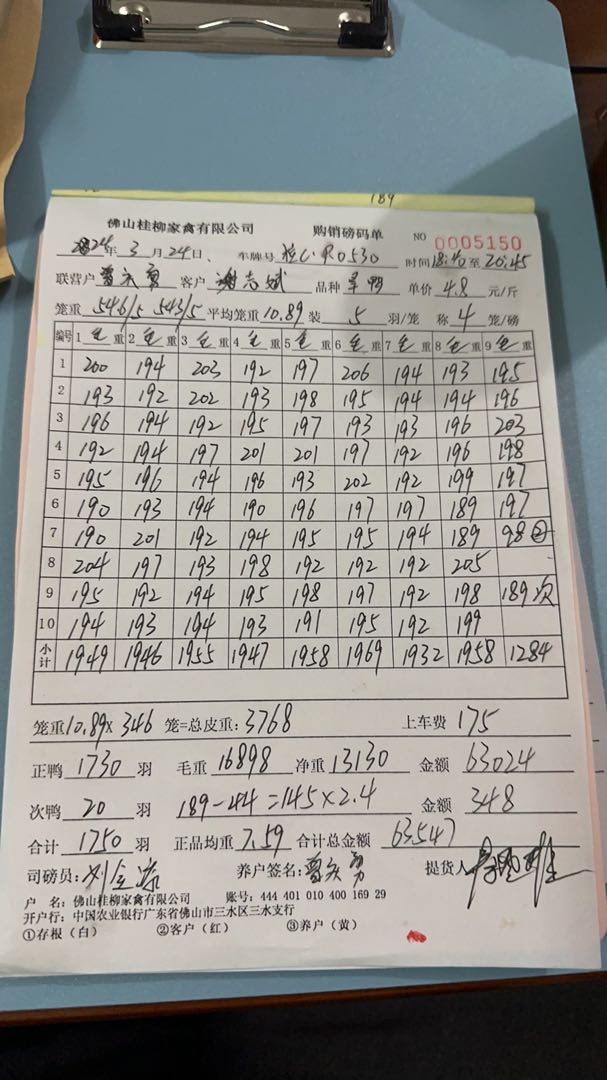 189
佛山桂柳家禽有限公司 购销磅码单 NO 0005150
2024年3月24日、 车牌号 C·R0530 时间18:40至20:45
联营户 客户 谢志斌 品种 鸭 单价 4.8 元/斤
笼重 546/5 543/5 平均笼重 10.89 装 5 羽/笼 称 4 笼/磅
编号 1 毛重 2 毛重 3 毛重 4 毛重 5 毛重 6 毛重 7 毛重 8 毛重 9 毛重
1 200 194 203 192 197 206 194 193 195
2 193 192 202 193 198 195 194 194 196
3 196 194 192 195 197 193 193 196 203
4 192 194 197 201 201 197 192 196 198
5 195 196 194 196 193 202 192 199 197
6 190 193 194 190 196 197 197 189 197
7 190 201 192 194 195 195 194 189 98②
8 204 197 193 198 192 192 192 205
9 195 192 194 195 198 197 192 198 189次
10 194 193 194 193 191 195 192 199
小计 1949 1946 1955 1947 1958 1969 1932 1958 1284
笼重10.89× 346 笼=总皮重: 3768 上车费 175
正鸭 1730 羽 毛重 16898 净重 13130 金额 63024
次鸭 20 羽 189-44=145×2.4 金额 348
合计 1750 羽 正品均重 7.59 合计总金额 63547
司磅员: 养户签名: 提货人
户 名: 佛山桂柳家禽有限公司 账号: 444 401 010 400 169 29
开户行: 中国农业银行广东省佛山市三水区三水支行
①存根(白) ②客户(红) ③养户(黄)